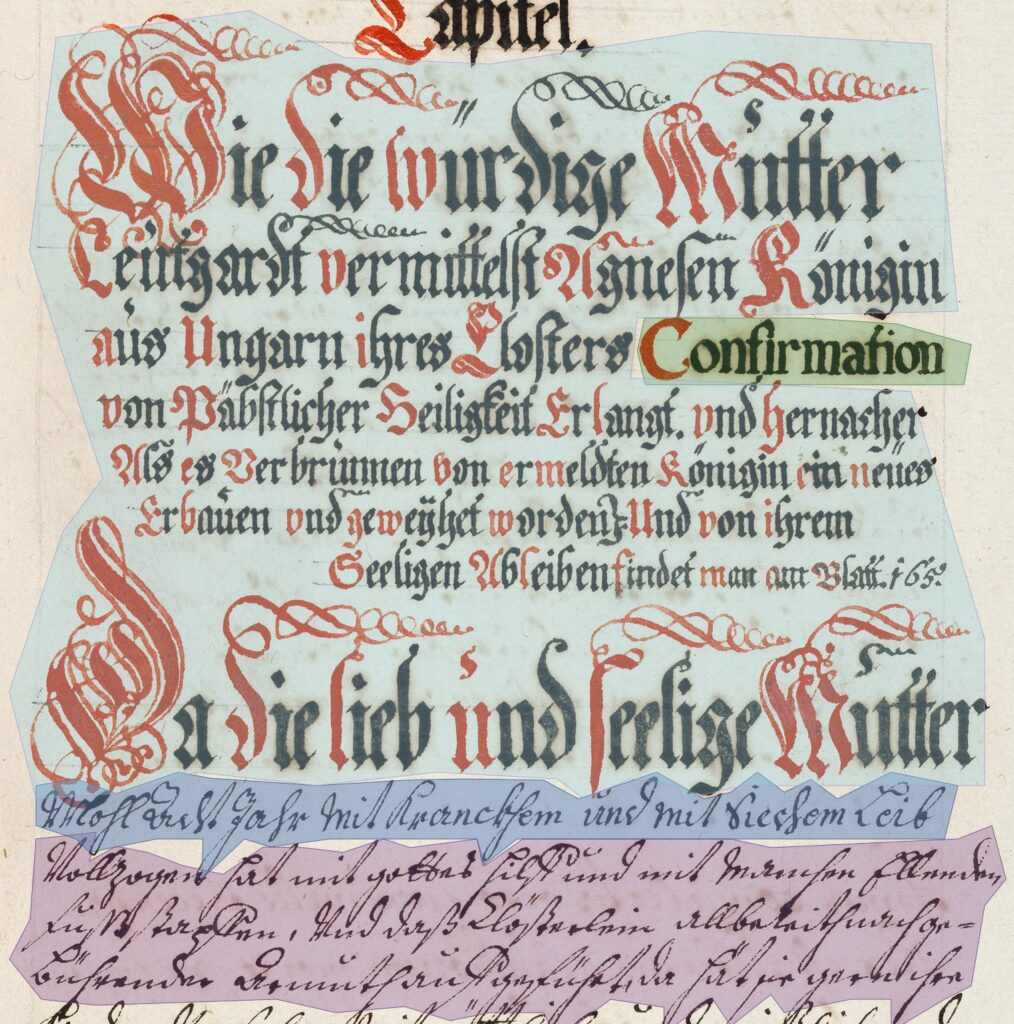 Capitel.
Wie die würdige Mutter
Leütgardt vermittelst Agnesen Königin
aus Ungarn ihres Closters Confirmation
von Päbstlicher Heiligkeit Erlangt. vnd hernacher
Als es Verbrunnen von ermeldten Königin ein neües
Erbauen vnd geweÿhet worden. Und von ihrem
Seeligen Ableiben findet man am Blatt. 165.
Da die lieb und seelige Mutter
Wohl Acht Jahr mit Kranckhem und mit Siechem Leib
Vollzogen hat mit gottes hilff und mit manchen Ellenden
fuesstapffen, Und daß Clösterlein allbereith nach ge=
bührender Armuth auffgeführt, da hat sie gern ihre